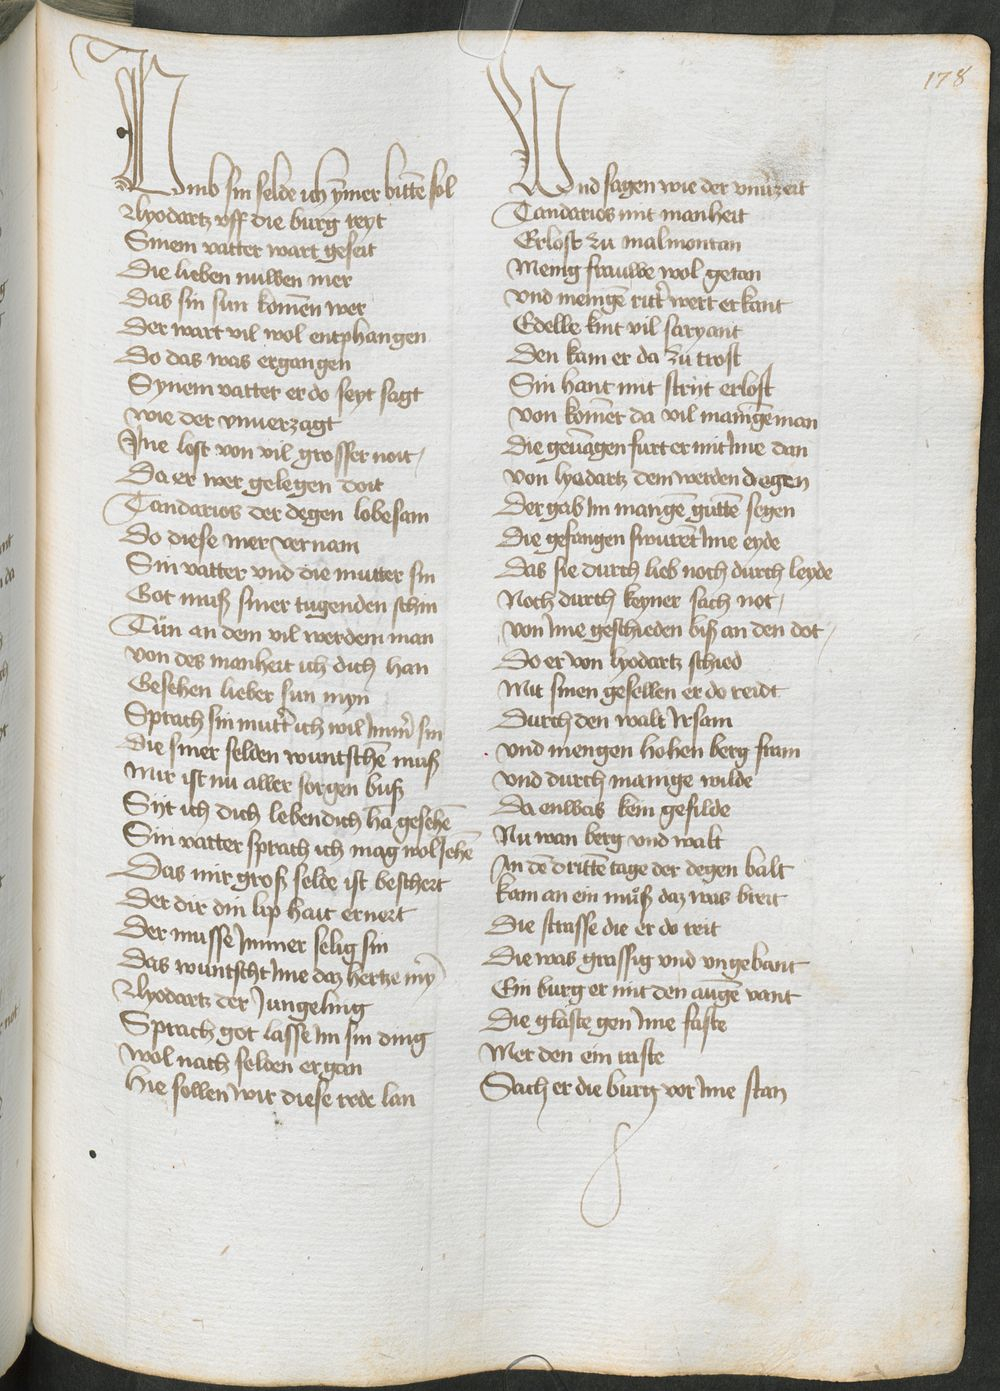 178
Umb sin selde ich ymer bittē sol
Lyodartz vff die burg reyt
Sinem vatter wart geseit
Die lieben nuwen mer
Das sin sun komēn wer
Der wart vil wol entphangen
Do das was ergangen
Synem vatter er do seyt sagt
wie der vnuerzagt
Ine lost von vil grosser noit
Da er wer gelegen doit
Tandarios der degen lobesam
Do diese mer vernam
Sin vatter vnd die mutter sin
Got muß siner tugenden schin
Tün an dem vil werdem man
von des manheit ich dich han
Gesehen lieber sun myn
Sprach sin mutt̄ ich wil Im̄ sin
die siner selden wuntschē muß
Mir ist nu aller sorgen buß
Sijt ich dich lebendich ha gesehē
Sin vatter sprach ich mag wol sehē
Das mir groß selde ist beschert
Der dir din lip hait ernert
Der musse Immer selig sin
Das wuntscht Ime daz hertze my̅
Lyodartz der Jungeling
Sprach got lasse Im sin ding
wol nach selden ergan
hie sollen wir diese rede lan
Und sagen wie der vnuerzeit
Tandarios mit manheit
Erlost zu malmontan
Menig frauwe wol getan
vnd menigē ritt̄ wert erkant
Edelle kint vil saryant
Den kam er da zu trost
Sin hant mit strijt erlost
von komēr da vil manigē man
Die geuāgen furt er mit Ime dan
von lyodartz dem werden degen
Der gab Im mangē guttē segen
Die gefangen swurēt Ime eyde
Das sie durch lieb noch durch leyde
Noch durch keyner sach not
von Ime geschieden biß an den dot
Do er von lyodartz schied
Mit sinen gesellen er do reidt
Durch den walt Irsam
vnd mengen hohen berg fram
vnd durch manige wilde
Da enwas kein gefilde
Nu wan berg vnd walt
An dē drittē tage der degen balt
kam an ein muͦß daz was breit
Die strasse die er do reit
Die was grassig vnd vngebant
Ein burg er mit den augē vant
Die glaste gen Ime faste
Mer den ein raste
Sach er die burg vor Ime stan